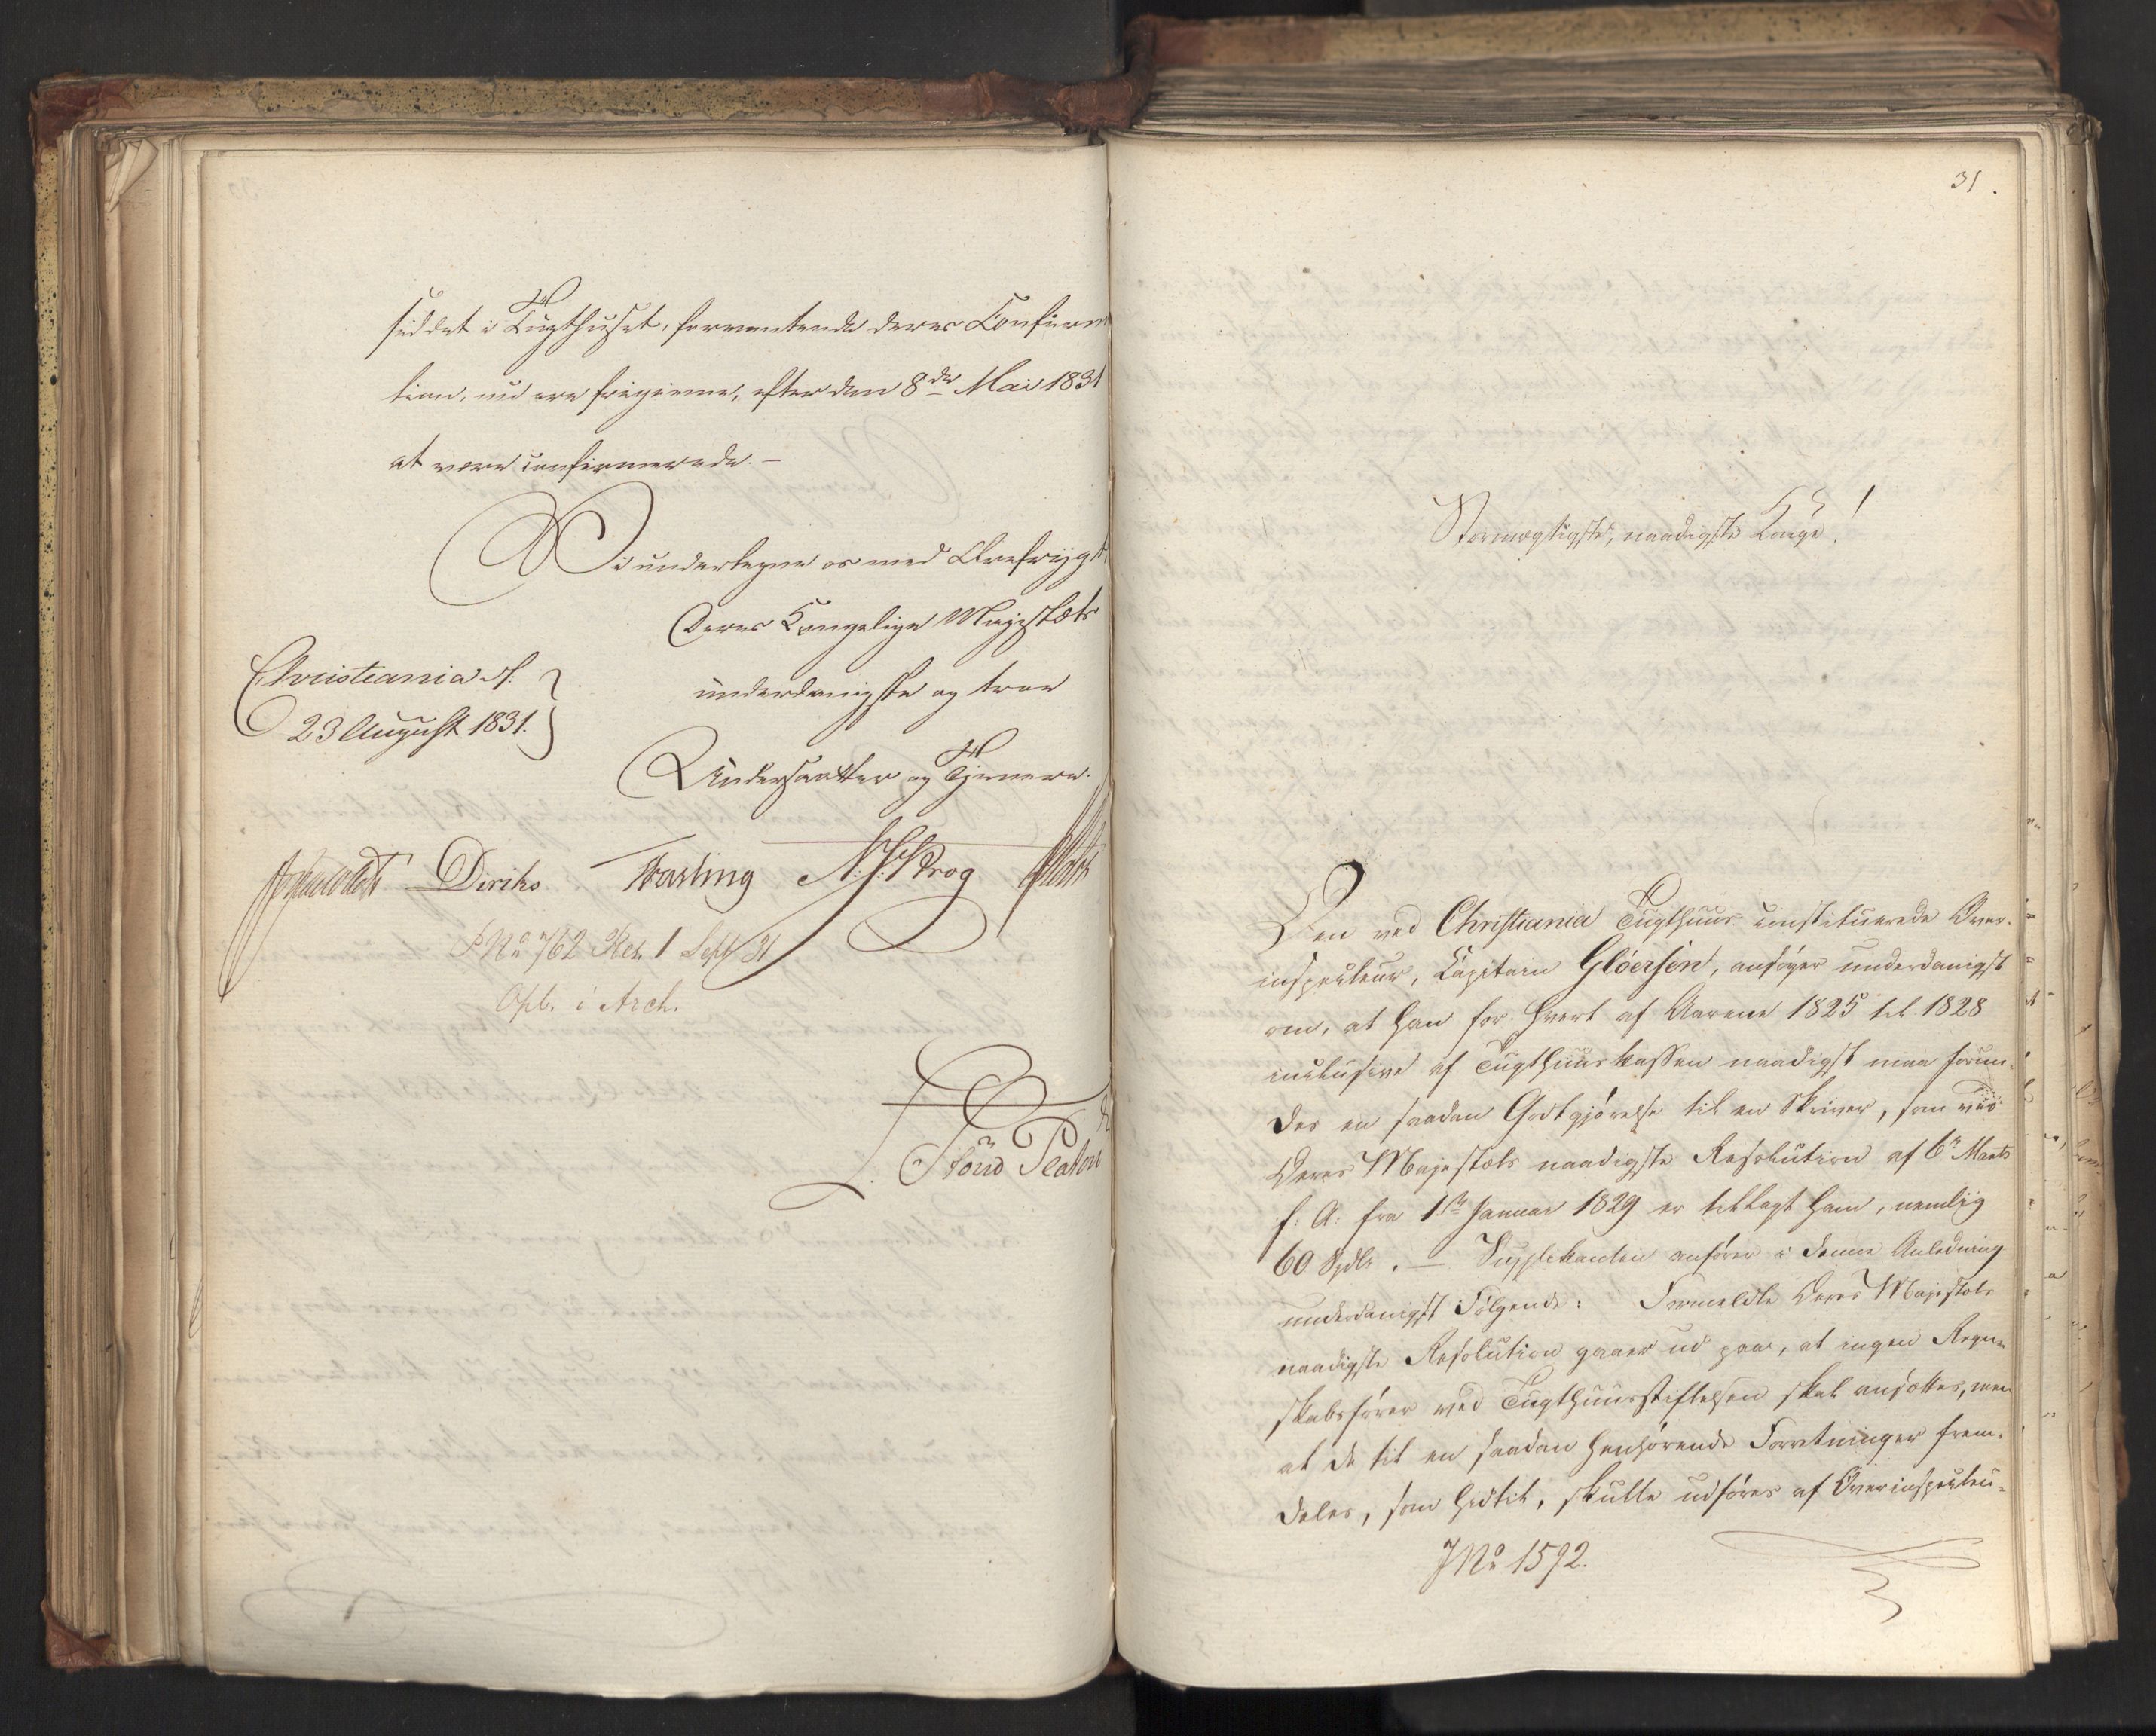 siddet i Tugthuset, forventende deres Confirma
tion, nu ere frigivne, efter den 8de Mai 1831
at være confirmerede. –
Vi undertegne os med Ærefrygt
Deres Kongelige Majestæts
underdanigste og troe
Undersaatter og Tjenere.
Christiania d.
23 August 1831.
Diriks Fasting Krog
No 762 Res. 1 Sept 31
Opl. i Arch.
31.
Stormægtigste, naadigste Konge!
Den ved Christiania Tugthuus constituerede Over-
inspecteur, Capitain Glöersen, ansøger underdanigst
om, at han for hvert af Aarene 1825 til 1828
inclusive af Tugthuuskassen naadigst maa forun-
des en saadan Godtgjørelse til en Skriver, som ved
Deres Majestæts naadigste Resolution af 6te Marts
f. A. fra 1ste Januar 1829 er tillagt ham, nemlig
60 Spdlr. — Supplikanten anfører i denne Anledning
underdanigst Følgende: Formeldte Deres Majestæts
naadigste Resolution gaaer ud paa, at ingen Regn-
skabsfører ved Tugthuusstiftelsen skal ansættes, men
at de til en saadan henhørende Forretninger frem-
deles, som hidtil, skulle udføres af Overinspecteu-
J No 1592.